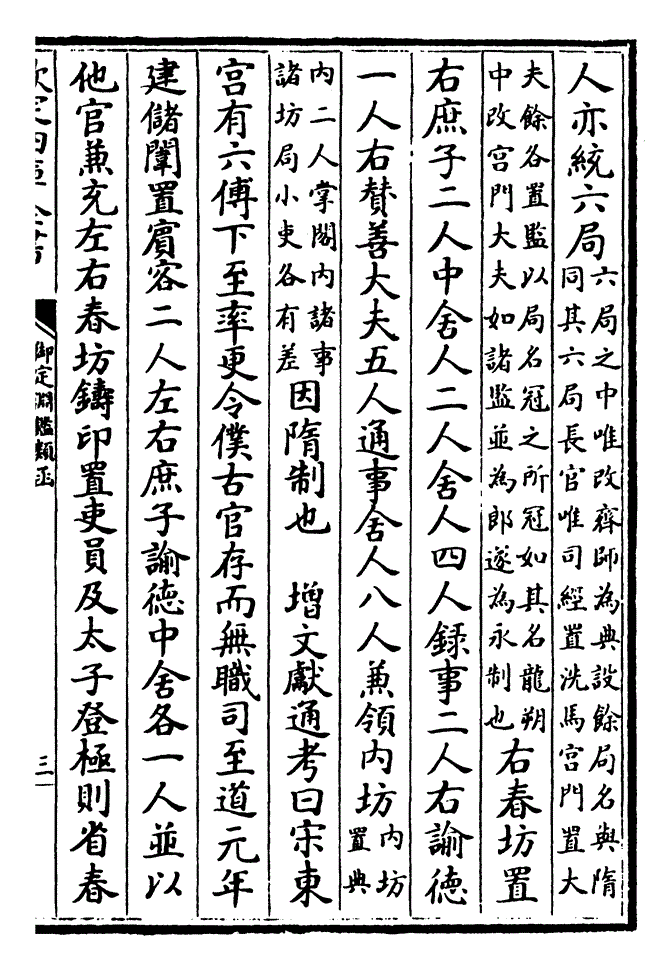 人亦統六局六局之中唯改齊師為典設餘局名與隋同其六局長官唯司經置洗馬宮門置大
夫餘各置監以局名冠之所冠如其名龍朔中改宮門大夫如諸監並為郎遂為永制也右春坊置
右庶子二人中舍人二人舍人四人錄事二人右諭徳
一人右賛善大夫五人通事舍人八人兼領内坊内坊置典
内二人掌閤内諸事諸坊局小吏各有差因隋制也　增文獻通考曰宋東
宫有六傅下至率更令僕古官存而無職司至道元年
建儲闈置賔客二人左右庶子諭徳中舍各一人並以
他官兼充左右春坊鑄印置吏員及太子登極則省春
御定淵鑑類函
三